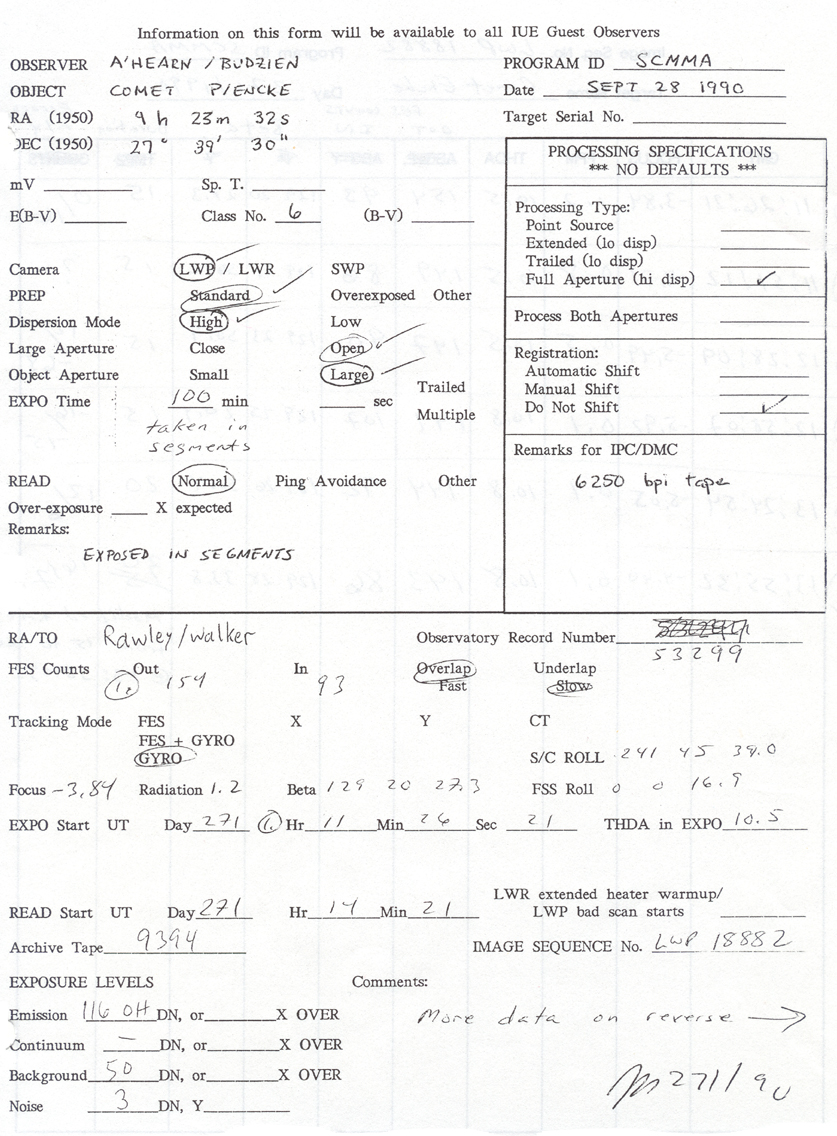 Information on this form will be available to all IUE Guest Observers
OBSERVER A'HEARN / BUDZIEN PROGRAM ID SCMMA
OBJECT COMET P/ENCKE Date SEPT 28 1990
RA (1950) 9 h 23 m 32 s Target Serial No.
DEC (1950) 27° 39' 30"
PROCESSING SPECIFICATIONS
*** NO DEFAULTS ***
mV Sp. T.
E(B-V) Class No. 6 (B-V)
Processing Type:
Point Source
Extended (lo disp)
Trailed (lo disp)
Full Aperture (hi disp) ✓
Process Both Apertures
Registration:
Automatic Shift
Manual Shift
Do Not Shift ✓
Remarks for IPC/DMC
6250 bpi tape
Camera LWP / LWR SWP
PREP Standard Overexposed Other
Dispersion Mode High Low
Large Aperture Close Open
Object Aperture Small Large
EXPO Time 100 min sec Trailed
Multiple
taken in
segments
READ Normal Ping Avoidance Other
Over-exposure X expected
Remarks:
EXPOSED IN SEGMENTS
RA/TO Rawley/Walker Observatory Record Number
53299
FES Counts Out 1. 154 In 93 Overlap Underlap
Fast Slow
Tracking Mode FES X Y CT
FES + GYRO
GYRO S/C ROLL 241 45 39.0
Focus -3.84 Radiation 1.2 Beta 129 20 27.3 FSS Roll 0 0 16.9
EXPO Start UT Day 271 1. Hr 11 Min 26 Sec 21 THDA in EXPO 10.5
LWR extended heater warmup/
LWP bad scan starts
READ Start UT Day 271 Hr 14 Min 21
Archive Tape 9394 IMAGE SEQUENCE No. LWP 18882
EXPOSURE LEVELS Comments:
Emission 116 OH DN, or X OVER
More data on reverse →
Continuum — DN, or X OVER
Background 50 DN, or X OVER
Noise 3 DN, Y
271/90